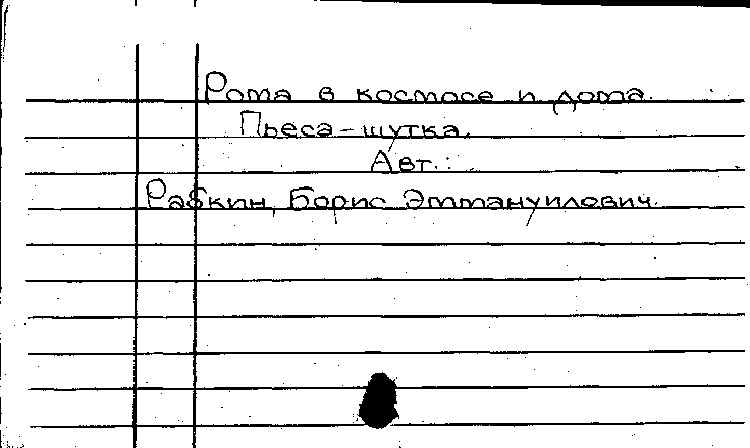 Рома в космосе и дома.
Пьеса-шутка.
Авт.:
Рабкин, Борис Эммануилович.